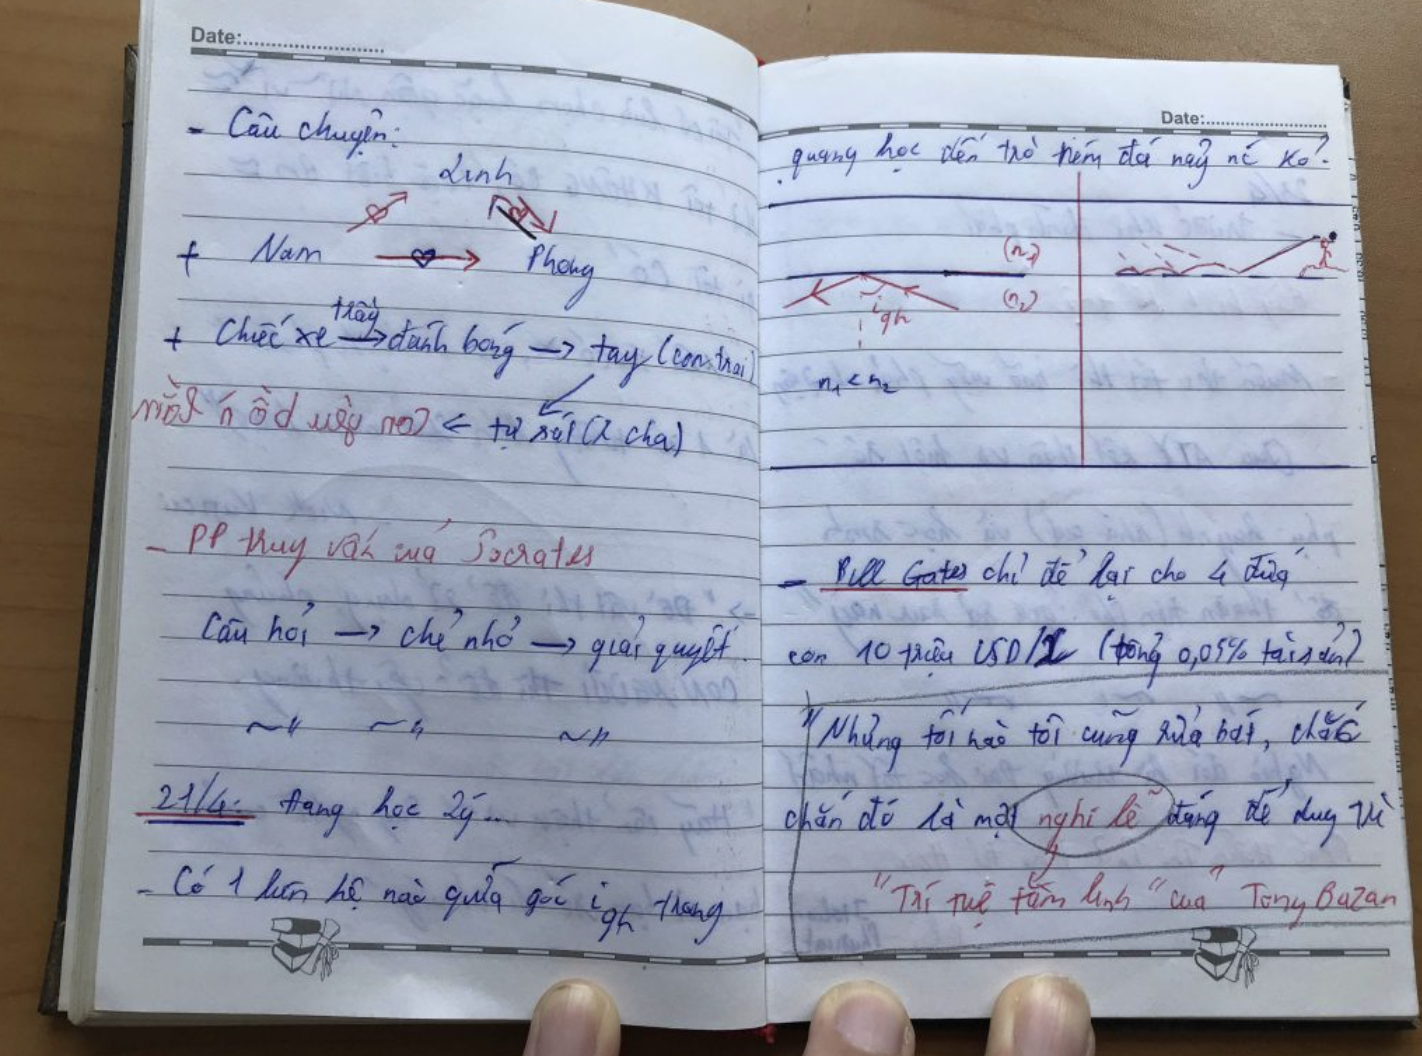 Date:
- Câu chuyện:
Linh
+ Nam Phong
trầy
+ Chiếc xe → đánh bóng → tay (con trai)
← tự sát (2 cha)
- PP truy vấn của Socrates
Câu hỏi → chẻ nhỏ → giải quyết.
~" ~" ~"
21/4: Đang học Lý...
- Có 1 liên hệ nào giữa góc igh trong
Date:
quang học đến trò ném đá nảy nc ko?
(n1)
(n2)
igh
n1 < n2
- Bill Gates chỉ để lại cho 4 đứa
con 10 triệu USD/1 (tổng 0,05% tài sản)
"Những tối nào tôi cũng rửa bát, chắc
chắn đó là một nghi lễ đáng để duy trì
"Trí tuệ tâm linh" của Tony Buzan